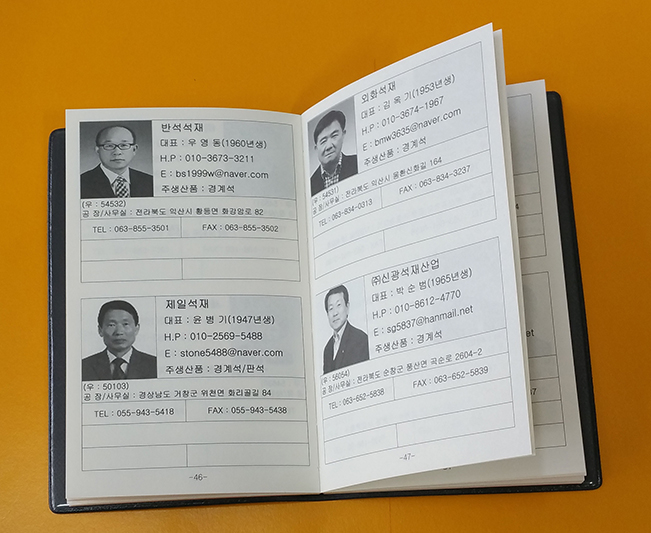 반석석재
대표 : 우 영 동(1960년생)
H.P : 010-3673-3211
E : bs1999w@naver.com
주생산품 : 경계석
(우 : 54532)
공 장/사무실 : 전라북도 익산시 황등면 화강암로 82
TEL : 063-855-3501 FAX : 063-855-3502
제일석재
대표 : 윤 병 기(1947년생)
H.P : 010-2569-5488
E : stone5488@naver.com
주생산품 : 경계석/판석
(우 : 50103)
공 장/사무실 : 경상남도 거창군 위천면 화리골길 84
TEL : 055-943-5418 FAX : 055-943-5438
-46-
외화석재
대표 : 김 옥 기(1953년생)
H.P : 010-3674-1967
E : bmw3635@naver.com
주생산품 : 경계석
(우 : 54531)
공 장/사무실 : 전라북도 익산시 왕환신화길 164
TEL : 063-834-0313 FAX : 063-834-3237
㈜신광석재산업
대표 : 박 순 범(1965년생)
H.P : 010-8612-4770
E : sg5837@hanmail.net
주생산품 : 경계석
(우 : 56054)
공 장/사무실 : 전라북도 순창군 풍산면 곡순로 2604-2
TEL : 063-652-5838 FAX : 063-652-5839
-47-
et